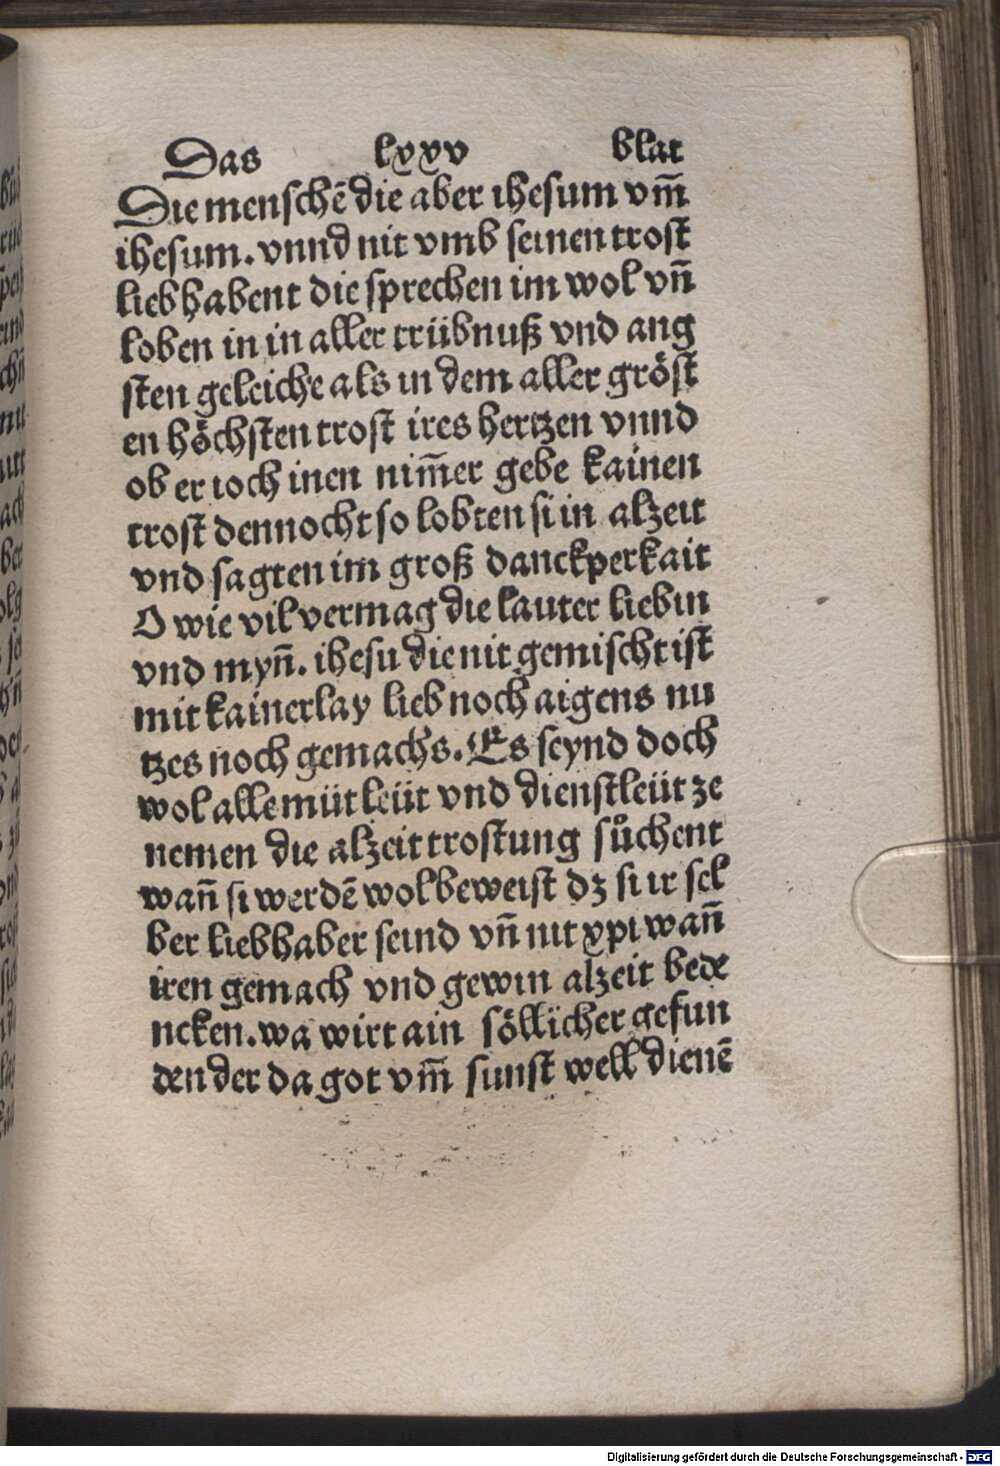 Das lxxv blat
Die menschē die aber ihesum vm̄
ihesum. vnnd nit vmb seinen trost
liebhabent die sprechen im wol vn̄
loben in in aller trübnuß vnd ang
sten geleiche als in dem aller gröst
en höchsten trost ires hertzen vnnd
ob er ioch inen nim̄er gebe kainen
trost dennocht so lobten si in alzeit
vnd sagten im groß danckperkait
O wie vil vermag die lauter lieb in
vnd myn̄. ihesu die nit gemischt ist
mit kainerlay lieb noch aigens nu
tzes noch gemachs. Es seynd doch
wol alle müt leüt vnd dienstleüt ze
nemen die alzeit trostung sůchent
wan̄ si werdē wol beweist dz si ir sel
ber liebhaber seind vn̄ nit xpi wan̄
iren gemach vnd gewin alzeit bede
ncken. wa wirt ain söllicher gefun
den der da got vm̄ sunst well dienē
Digitalisierung gefördert durch die Deutsche Forschungsgemeinschaft - DFG